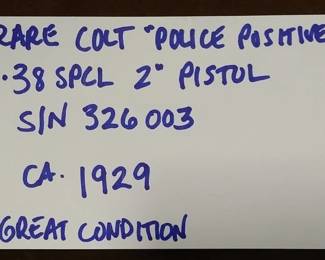 RARE COLT "POLICE POSITIVE
.38 SPCL 2" PISTOL
S/N 326003
CA. 1929
GREAT CONDITION